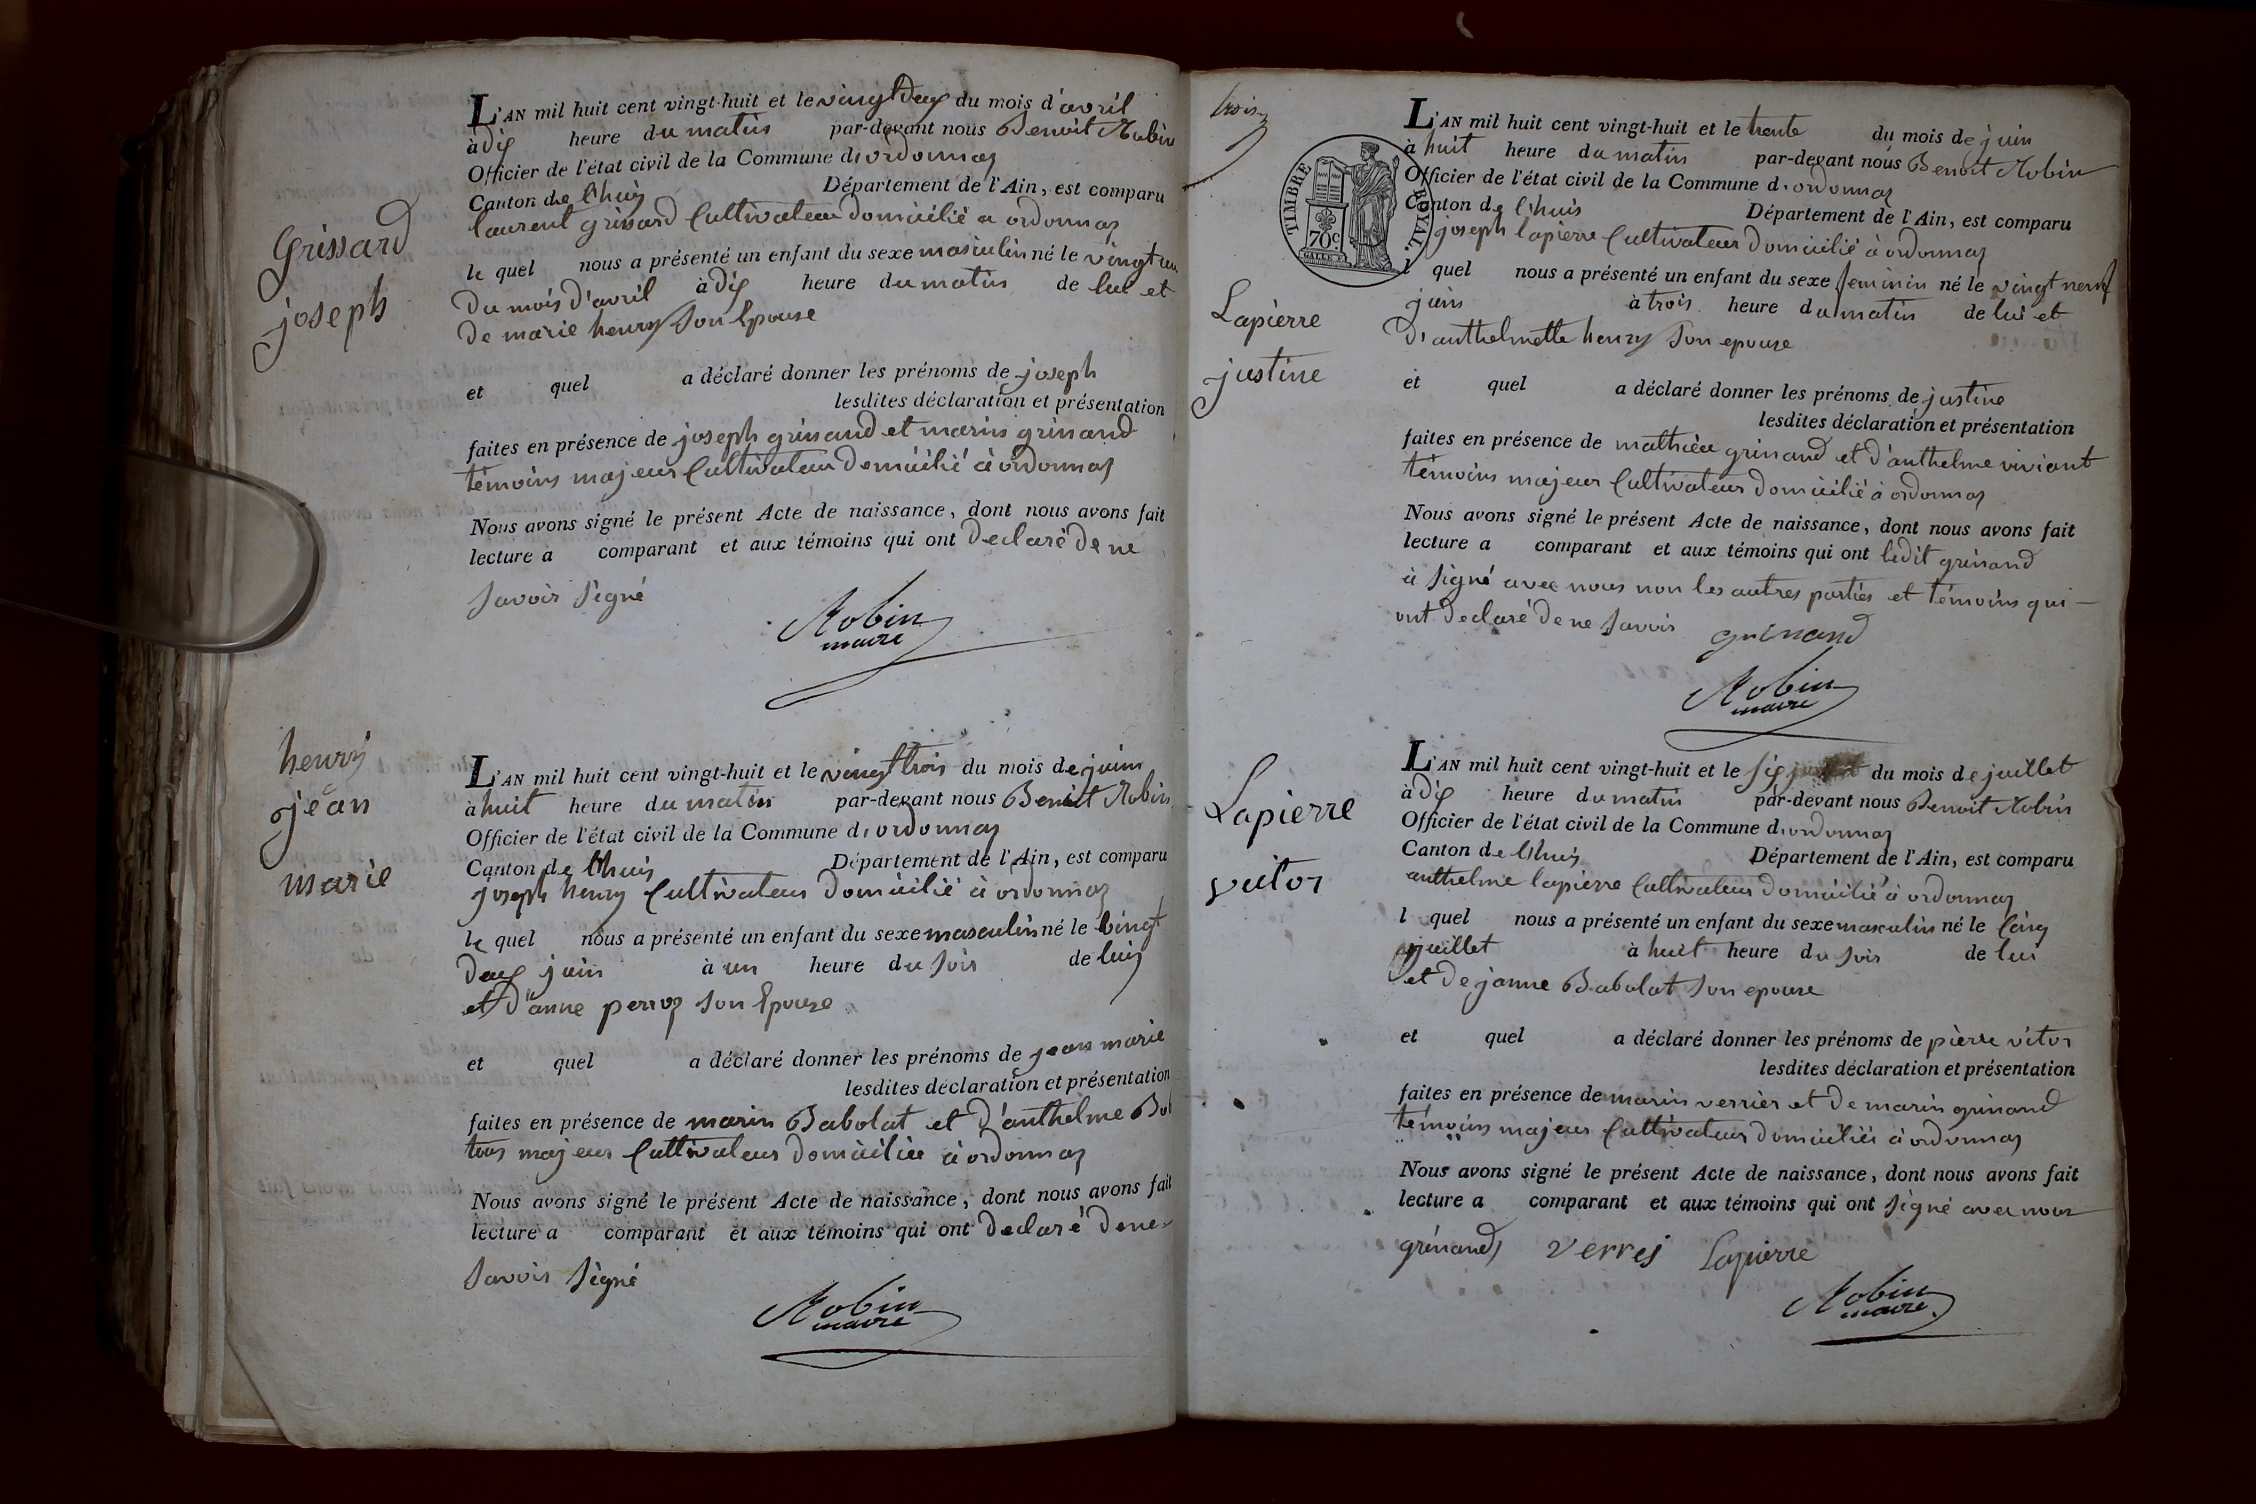 Grissard
joseph
L'AN mil huit cent vingt-huit et le vingt deux du mois d'avril
à dix heure du matin par-devant nous Benoit Robin
Officier de l'état civil de la Commune d'ordonnaz
Canton de lhuis Département de l'Ain, est comparu
laurent grissard Cultivateur domicilié a ordonnaz
le quel nous a présenté un enfant du sexe masculin né le vingt un
du mois d'avril à dix heure du matin de lui et
de marie henry son Epouse
et quel a déclaré donner les prénoms de joseph
lesdites déclaration et présentation
faites en présence de joseph grinand et marin grinand
témoins majeur Cultivateur domicilié à ordonnaz
Nous avons signé le présent Acte de naissance, dont nous avons fait
lecture a comparant et aux témoins qui ont declaré de ne
savoir signé
Robin
maire
henry
jean
marie
L'AN mil huit cent vingt-huit et le vingt trois du mois de juin
à huit heure du matin par-devant nous Benoit Robin
Officier de l'état civil de la Commune d'ordonnaz
Canton de lhuis Département de l'Ain, est comparu
joseph henry Cultivateur domicilié à ordonnaz
le quel nous a présenté un enfant du sexe masculin né le vingt
deux juin à un heure du soir de luy
et d'anne perroz son Epouse
et quel a déclaré donner les prénoms de jean marie
lesdites déclaration et présentation
faites en présence de marin Babolat et d'anthelme
tous majeur Cultivateur domiciliée à ordonnaz
Nous avons signé le présent Acte de naissance, dont nous avons fait
lecture a comparant et aux témoins qui ont declaré de ne
savoir signé
Robin
maire
trois
TIMBRE ROYAL.
70c
Lapierre
justine
L'AN mil huit cent vingt-huit et le trente du mois de juin
à huit heure du matin par-devant nous Benoit Robin
Officier de l'état civil de la Commune d'ordonnaz
Canton de lhuis Département de l'Ain, est comparu
joseph lapierre Cultivateur domicilié à ordonnaz
l quel nous a présenté un enfant du sexe feminin né le vingt neuf
juin à trois heure du matin de lui et
d'anthelmette henry son epouse
et quel a déclaré donner les prénoms de justine
lesdites déclaration et présentation
faites en présence de mathieu grinand et d'anthelme viviant
témoins majeur Cultivateur domicilié à ordonnaz
Nous avons signé le présent Acte de naissance, dont nous avons fait
lecture a comparant et aux témoins qui ont ledit grinand
à signé avec nous non les autres parties et témoins qui
ont declaré de ne savoir grinand
Robin
maire
Lapierre
victor
L'AN mil huit cent vingt-huit et le six du mois de juillet
à dix heure du matin par-devant nous Benoit Robin
Officier de l'état civil de la Commune d'ordonnaz
Canton de lhuis Département de l'Ain, est comparu
anthelme lapierre Cultivateur domicilié à ordonnaz
l quel nous a présenté un enfant du sexe masculin né le cinq
juillet à huit heure du soir de lui
et de janne Babolat son epouse
et quel a déclaré donner les prénoms de pierre vitor
lesdites déclaration et présentation
faites en présence de marin verrier et de marin grinand
témoins majeur Cultivateur domiciliés à ordonnaz
Nous avons signé le présent Acte de naissance, dont nous avons fait
lecture a comparant et aux témoins qui ont signé avec nous
grinand verrej Lapierre
Robin
maire